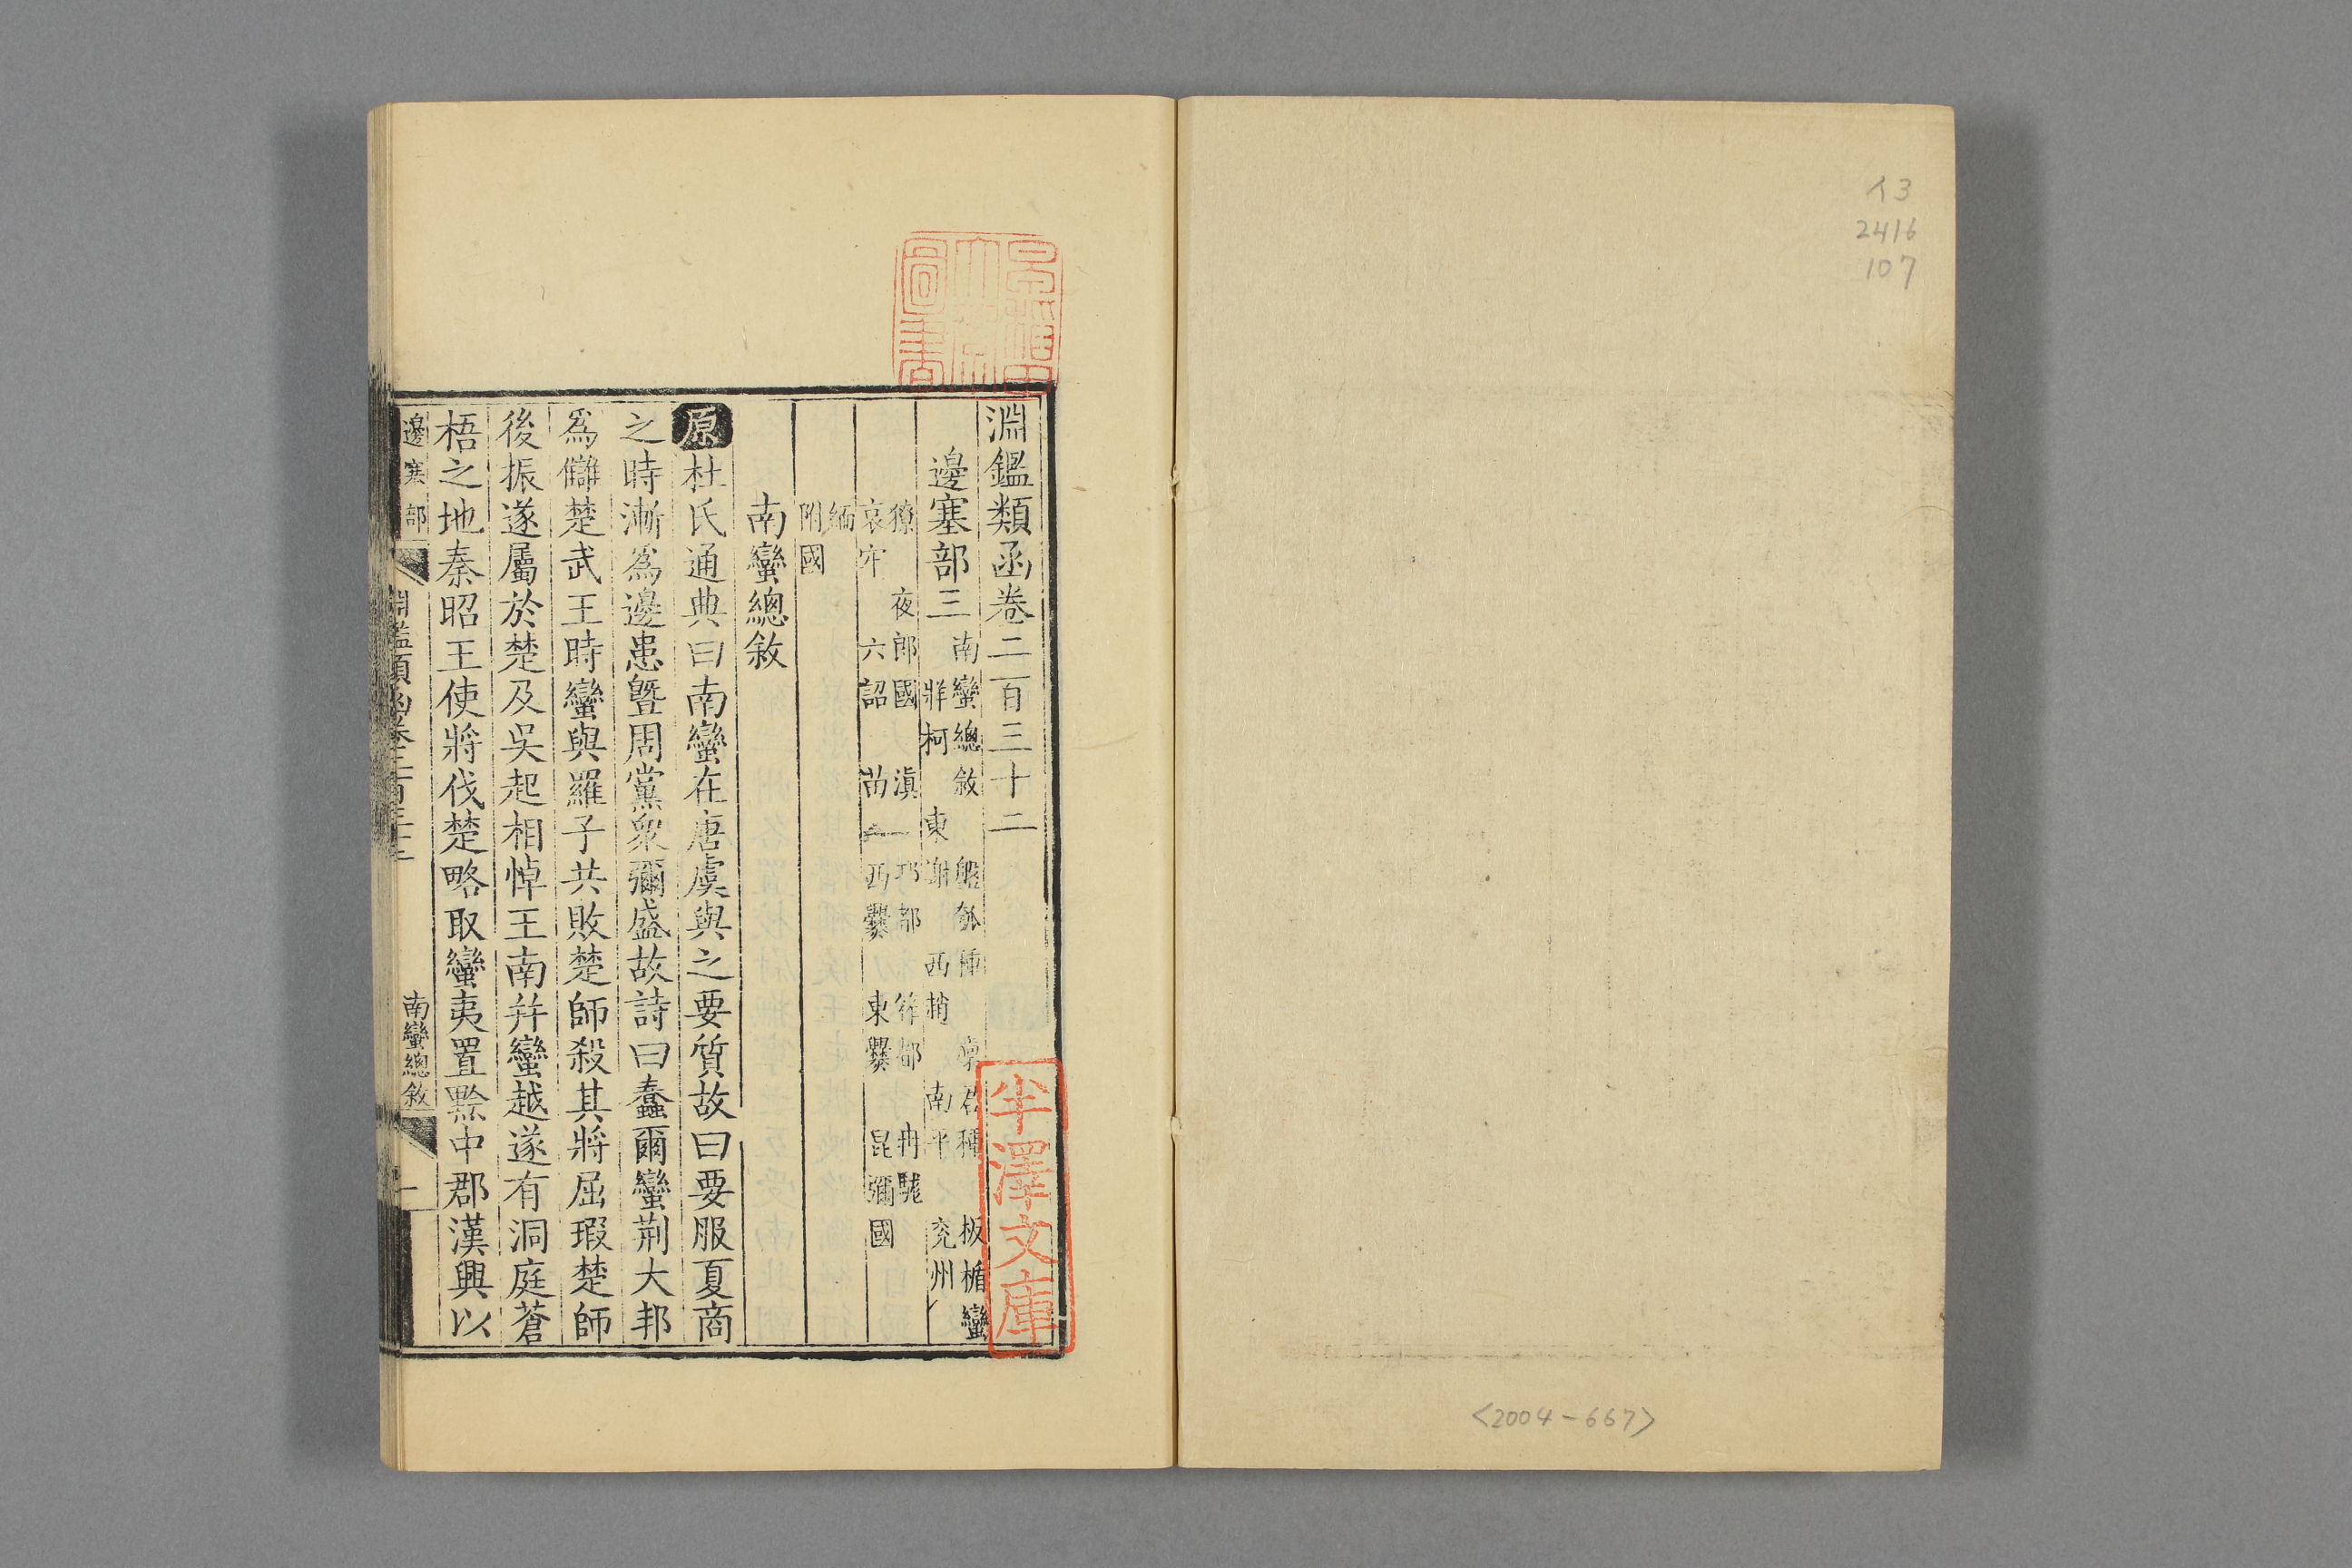 イ3
2416
107
<2004-667>
淵鑑類函卷二百三十二
邊塞部三
南蠻總敘 盤瓠種 廩君種 板楯蠻
牂柯 東謝 西趙 南平 兖州
獠 夜郎國 滇 邛都 莋都 冉駹
哀牢 六詔 苗 西爨 東爨 昆彌國
緬
附國
南蠻總敘
原杜氏通典曰南蠻在唐虞與之要質故曰要服夏商
之時漸爲邊患曁周黨衆彌盛故詩曰蠢爾蠻荆大邦
爲讎楚武王時蠻與羅子共敗楚師殺其將屈瑕楚師
後振遂屬於楚及吳起相悼王南并蠻越遂有洞庭蒼
梧之地秦昭王使將伐楚略取蠻夷置黔中郡漢興以
邊塞部
淵鑑類函卷二百三十二
南蠻總敘
一
半澤文庫
圖書